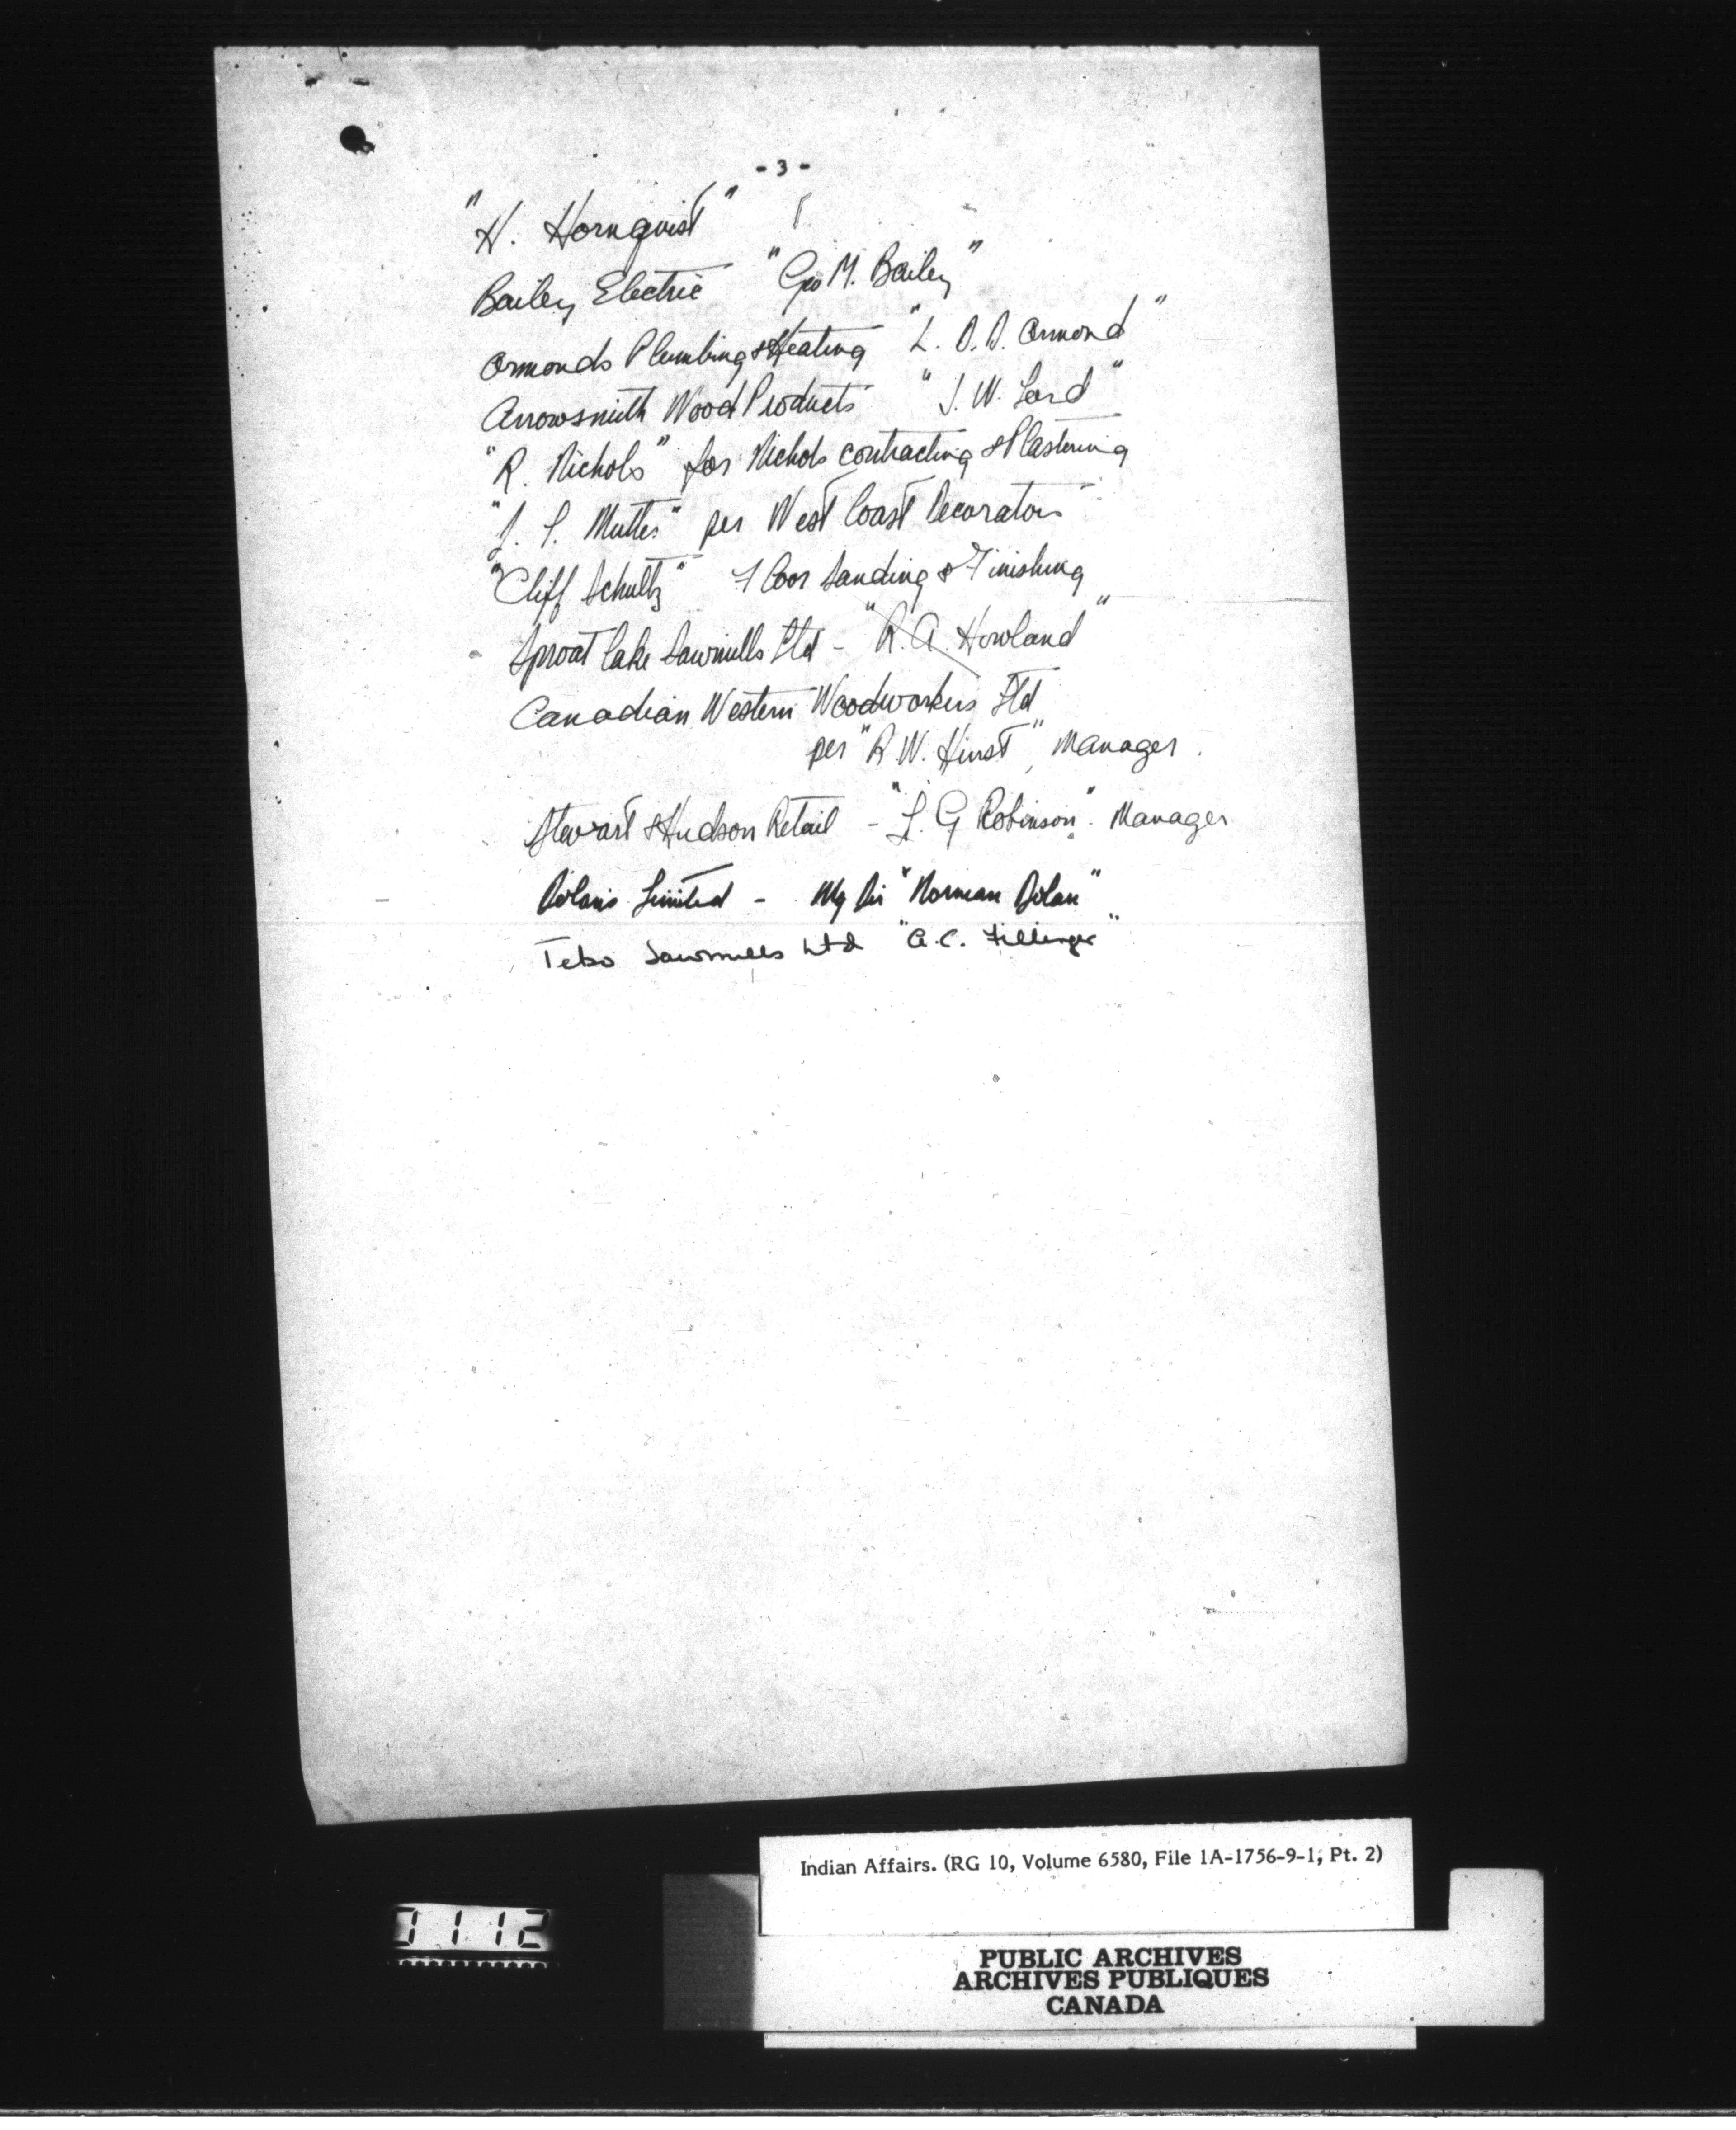 - 3 -
"H. Hornquist"
Bailey Electric "Geo M. Bailey"
Ormonds Plumbing & Heating "L. O. D. Ormond"
Arrowsmith Wood Products "J. W. Lord"
"R. Nichols" for Nichols contracting & Plastering
"J. P. Mutter" per West Coast Decorators
"Cliff Schultz" Floor Sanding & Finishing
Sproat Lake Sawmills Ltd - "R. A. Howland"
Canadian Western Woodworkers Ltd
per "R. W. Hirst", Manager.
Stewart & Hudson Retail - "L. G Robinson". Manager
Dolans Limited - Mg Dir "Norman Dolan"
Tebo Sawmills Ltd "A. C. Fillinger"
Indian Affairs. (RG 10, Volume 6580, File 1A-1756-9-1, Pt. 2)
01112
PUBLIC ARCHIVES
ARCHIVES PUBLIQUES
CANADA